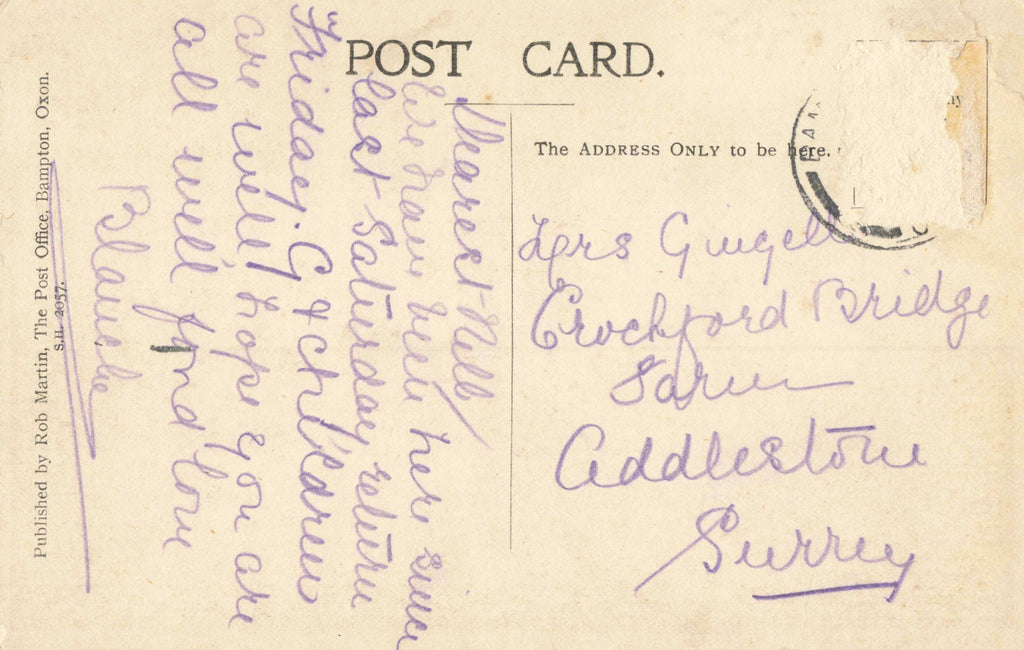 POST CARD.
The ADDRESS ONLY to be here.
BAM
Mrs Gingell
Crockford Bridge
Farm
Addlestone
Surrey
Dearest Nell
We have been here since
last Saturday return
Friday. G & children
are well, hope you are
all well, fond love
Blanche
Published by Rob Martin, The Post Office, Bampton, Oxon.
S.H. 2057.